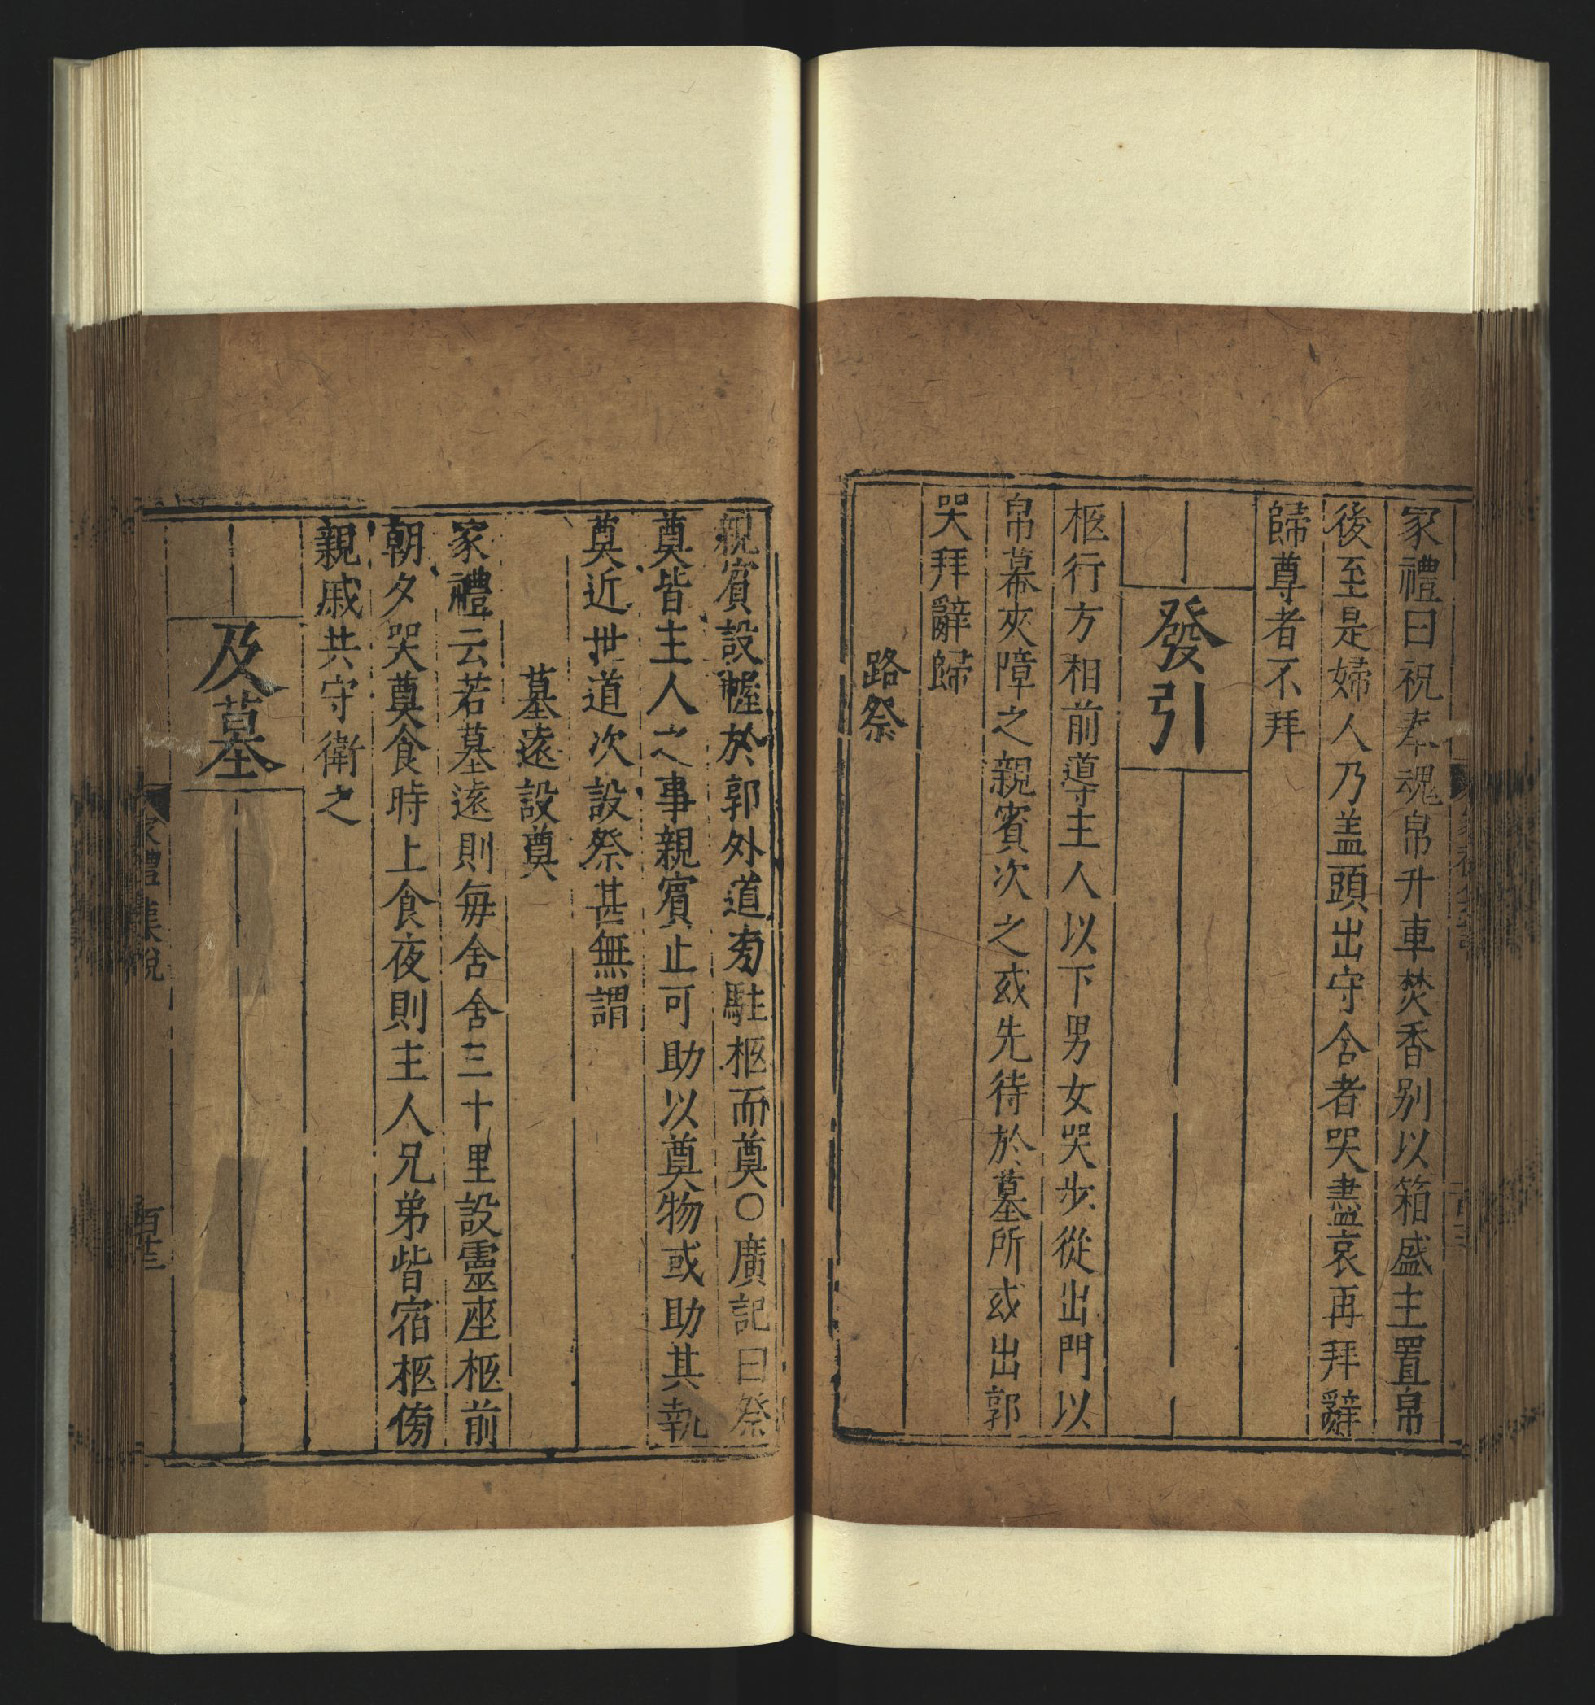 家禮曰祝奉魂帛升車焚香别以箱盛主置帛
後至是婦人乃盖頭出守舍者哭盡哀再拜辭
歸尊者不拜
發引
柩行方相前導主人以下男女哭步從出門以
帛幕夾障之親賓次之或先待於墓所或出郭
哭拜辭歸
路祭
親賓設幄於郭外道旁駐柩而奠○廣記曰祭
奠皆主人之事親賓止可助以奠物或助其執
奠近世道次設祭甚無謂
墓遠設奠
家禮云若墓遠則毎舍舍三十里設靈座柩前
朝夕哭奠食時上食夜則主人兄弟皆宿柩傍
親戚共守衛之
及墓
家禮集說